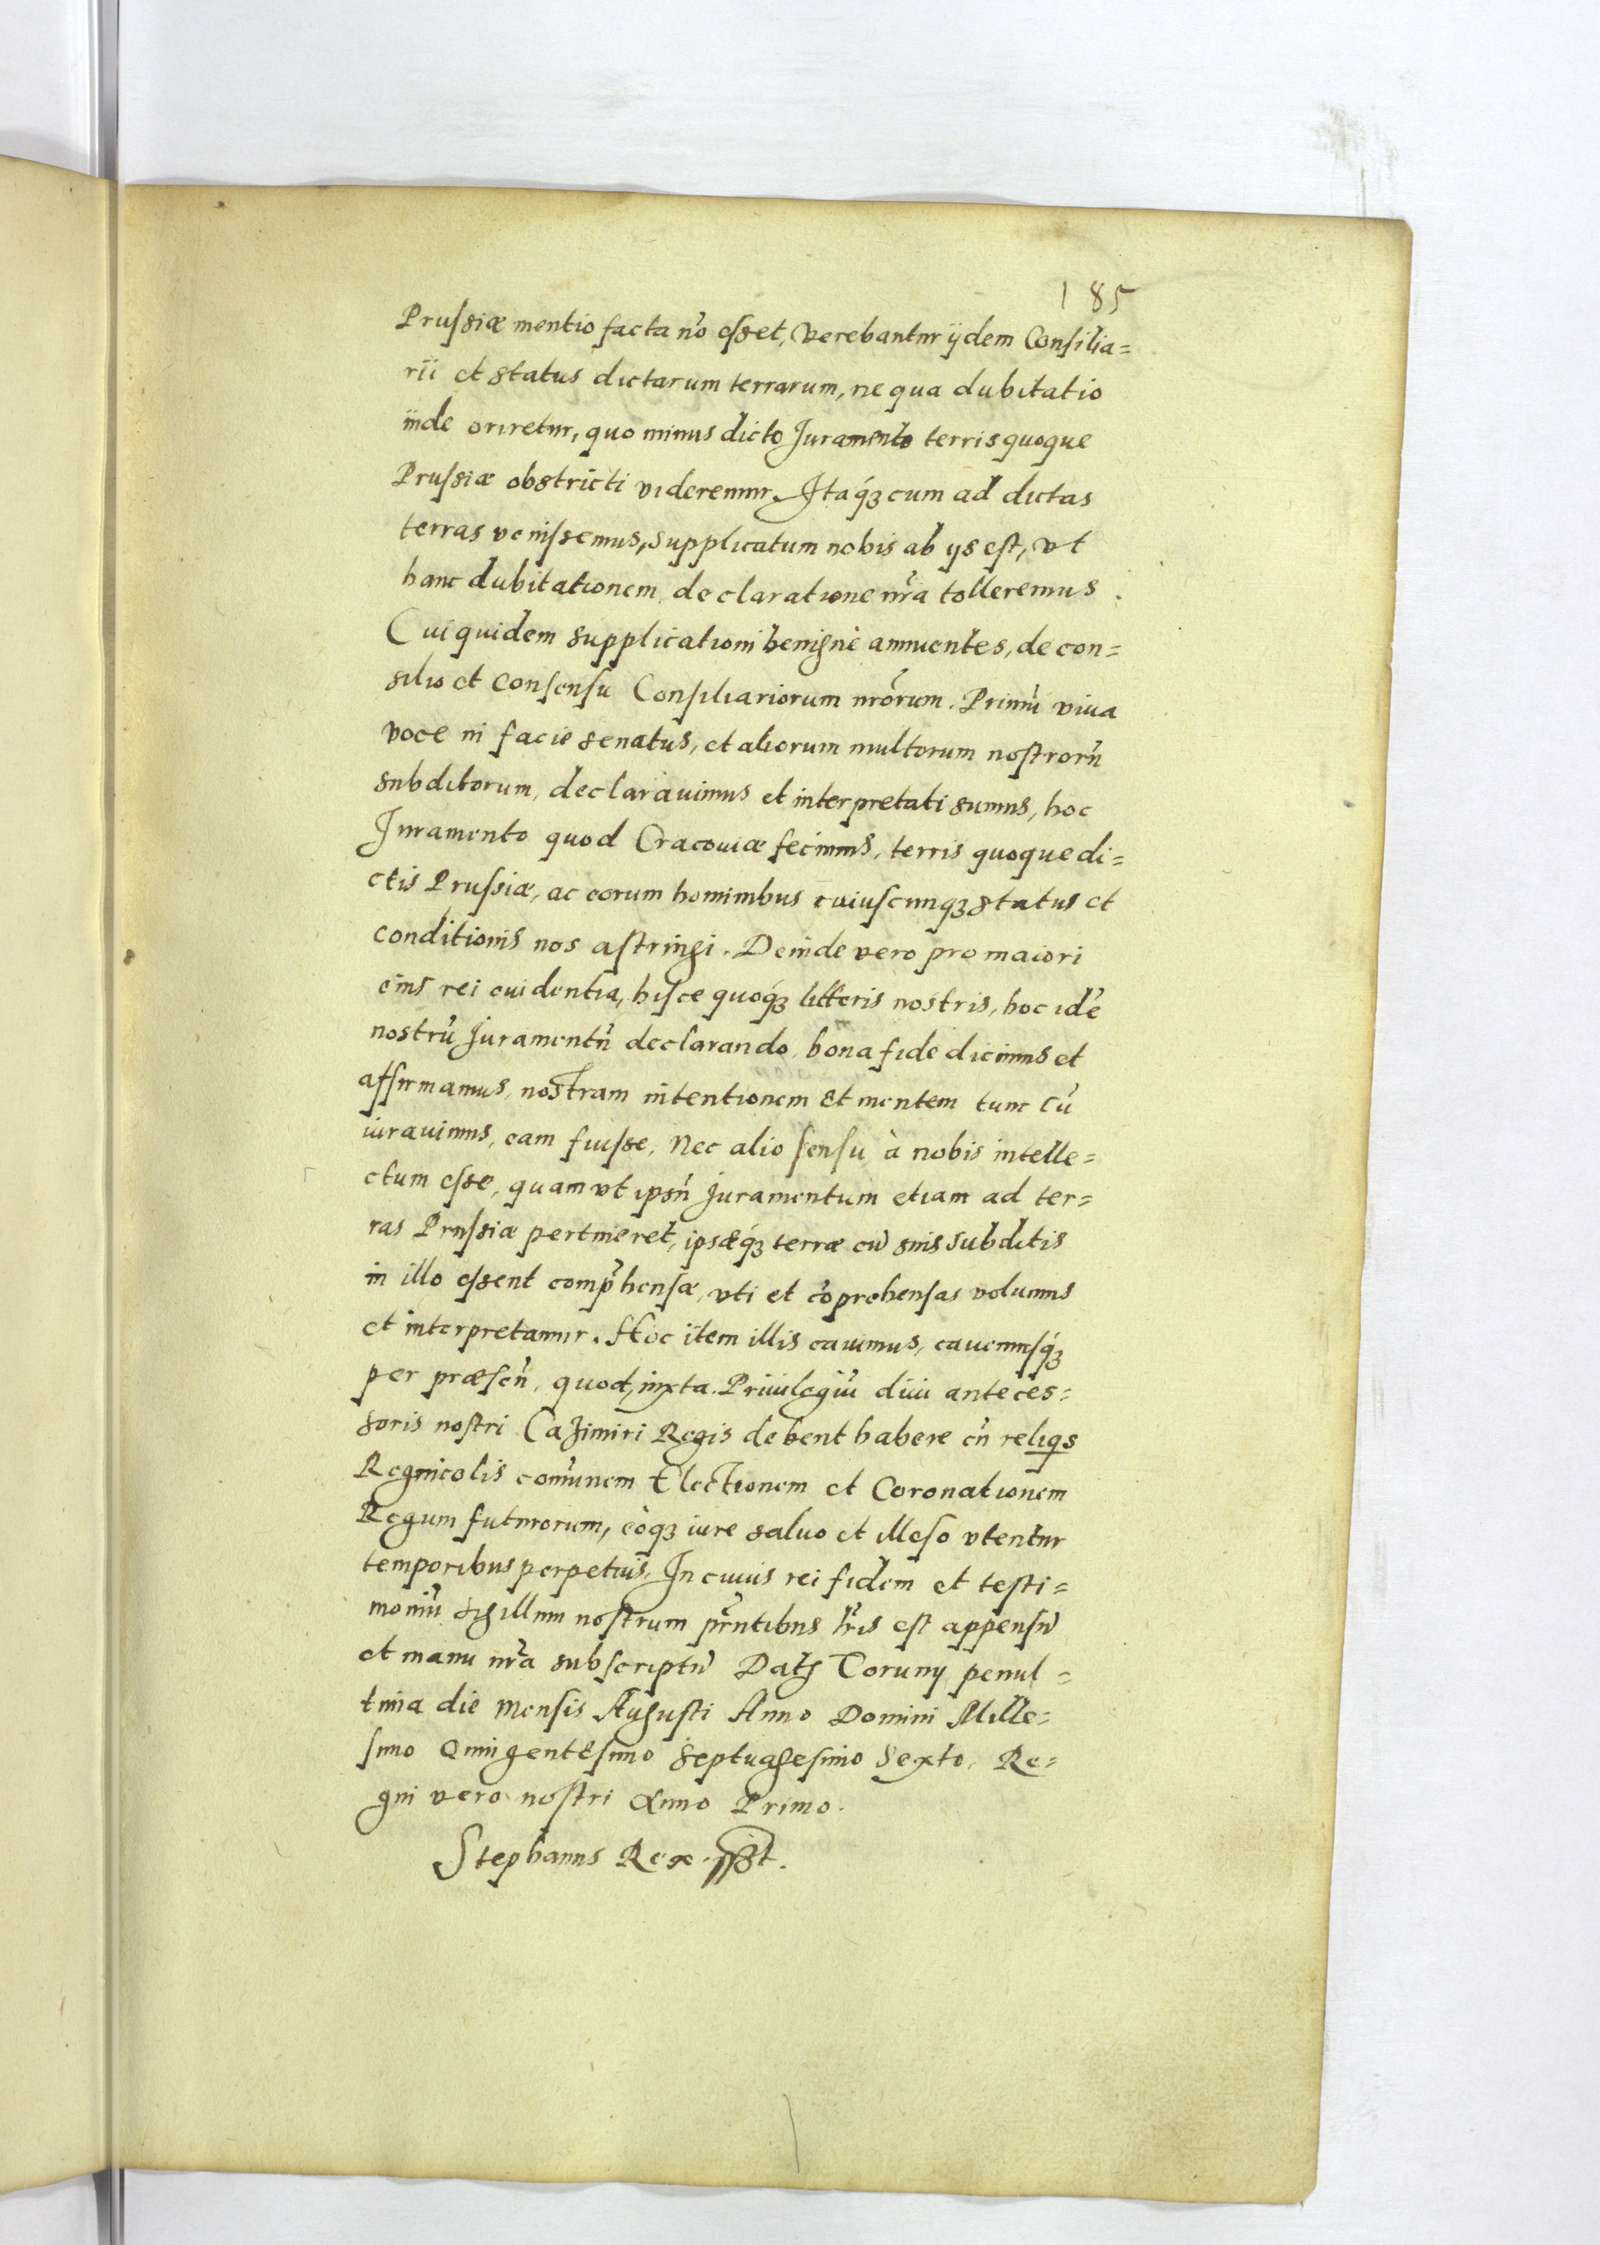 185
Prussiæ mentio facta nõ esset, verebantur ijdem Consilia=
rii et status dictarum terrarum, ne qua dubitatio
inde oriretur, quo minus dicto Juramento terris quoque
Prussiæ obstricti videremur. Itaq́ʒ cum ad dictas
terras venissemus, supplicatum nobis ab ijs est, vt
hanc dubitationem declaratione nr̃a tolleremus.
Cui quidem supplicationi benignè annuentes, de con=
silio et consensu Consiliariorum nrõrum. Primũ viua
voce in facie senatus, et aliorum multorum nostrorũ
subditorum, declarauimus et interpretati sumus, hoc
Juramento quod Cracouiæ fecimus, terris quoque di=
ctis Prussiæ, ac eorum hominibus cuiuscunqʒ status et
conditionis nos astringi. Deinde vero pro maiori
eius rei euidentia, hisce quoq́ʒ litteris nostris, hoc idẽ
nostrũ Juramentũ declarando, bona fide dicimus et
affirmamus, nostram intentionem et mentem tunc cũ
iurauimus, eam fuisse, Nec alio sensu à nobis intelle=
ctum esse, quam vt ipsũ Juramentum etiam ad ter=
ras Prussiæ pertineret, ipsæq́ʒ terræ cũ suis subditis
in illo essent comp̃hensæ, vti et cõprehensas volumus
et interpretamur. Hoc item illis cauimus, cauemusq́ʒ
per præseñ, quod, iuxta Priuilegiũ diui anteces=
soris nostri Cazimiri Regis debent habere cũ reliqs
Regnicolis com̃unem Electionem et Coronationem
Regum futurorum, eòqʒ iure saluo et illeso vtentur
temporibus perpetuis, In cuius rei fidem et testi=
moniũ sigillum nostrum pr̃ntibus lr̃is est appensũ
et manu nr̃a subscriptũ Datʒ Toruny penul=
tima die Mensis Augusti Anno Domini Mille=
simo Quingentesimo Septuagesimo Sexto, Re=
gni vero nostri Anno Primo.
Stephanus Rex sspt.